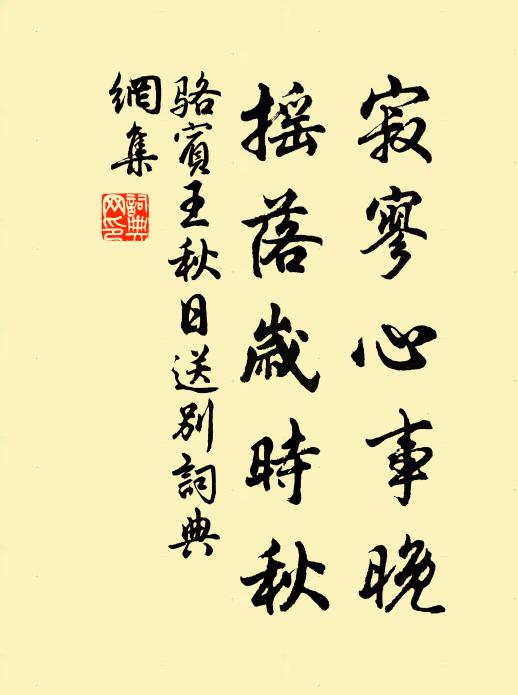 寂寥心事晚
摇落歲時秋
骆賓王秋日送别詞典
網集
詞典
网印